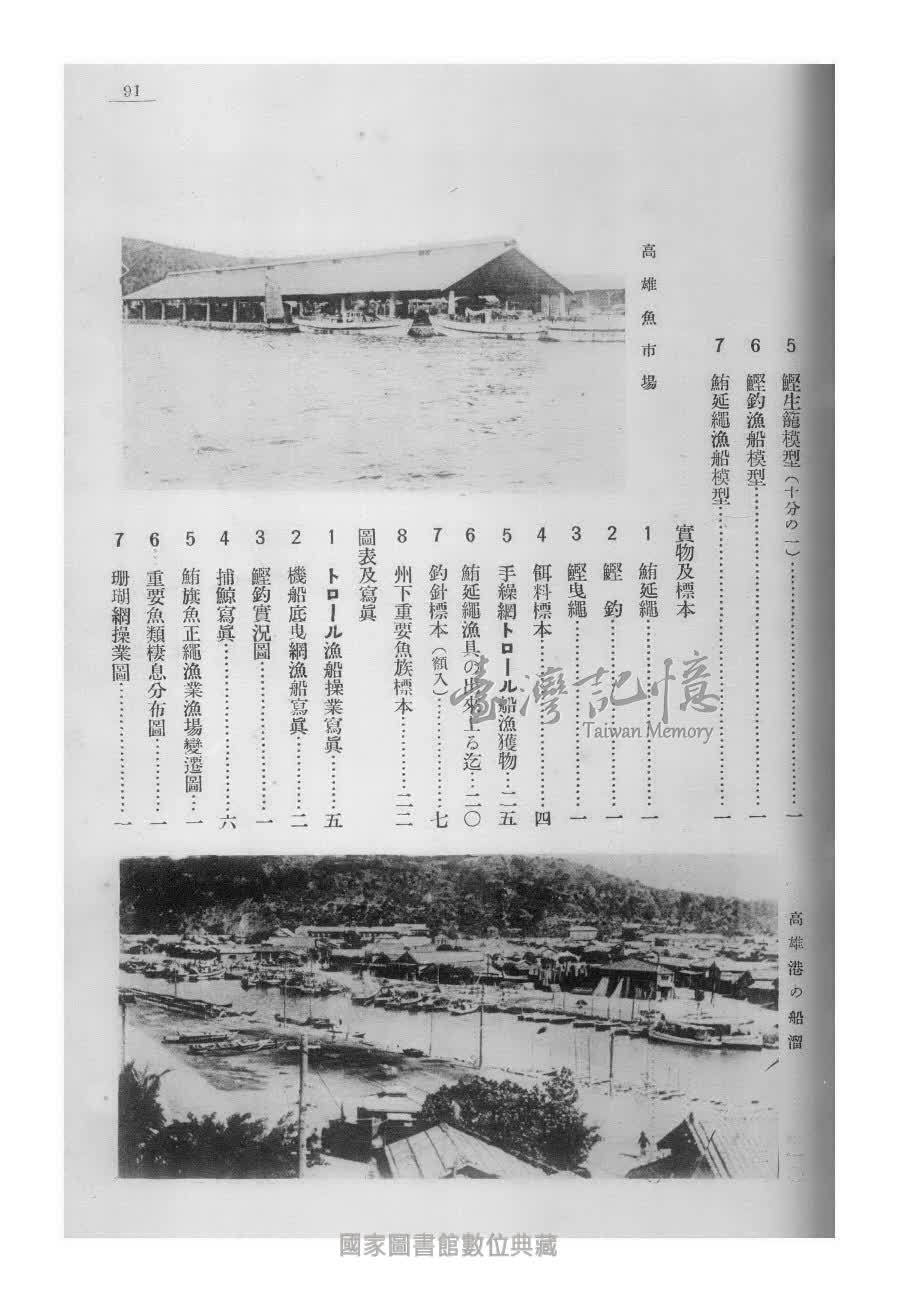 91
高雄魚市場
5 鰹生籠模型(十分の一)……一
6 鰹釣漁船模型……一
7 鮪延繩漁船模型……一
實物及標本
1 鮪延繩……一
2 鰹釣……一
3 鰹曳繩……一
4 餌料標本……四
5 手繰網トロール船漁獲物…二五
6 鮪延繩漁具の出來上る迄…二〇
7 釣針標本(額入)……七
8 州下重要魚族標本……二二
圖表及寫眞
1 トロール漁船操業寫眞……五
2 機船底曳網漁船寫眞……二
3 鰹釣實況圖……一
4 捕鯨寫眞……六
5 鮪旗魚正繩漁業漁場變遷圖…一
6 重要魚類棲息分布圖……一
7 珊瑚網操業圖……一
高雄港の船溜
臺灣記憶
Taiwan Memory
國家圖書館數位典藏